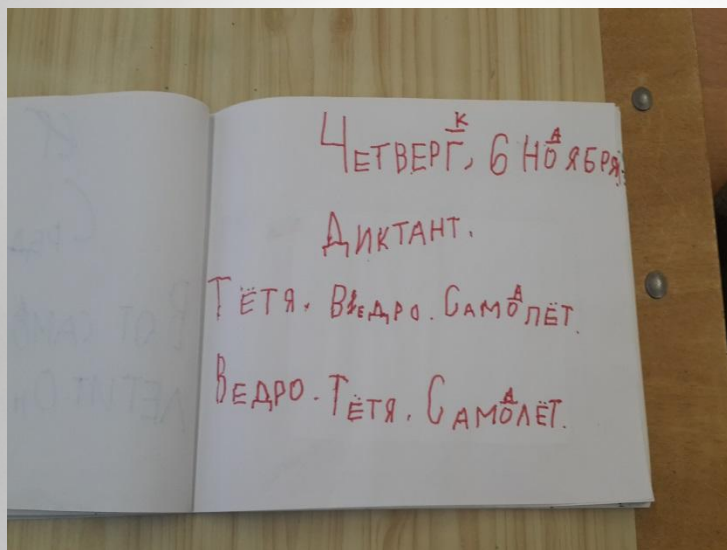 ЧЕТВЕРГ, 6 НОЯБРЯ.
ДИКТАНТ.
ТЁТЯ. ВЕДРО. САМОЛЁТ.
ВЕДРО. ТЁТЯ. САМОЛЁТ.